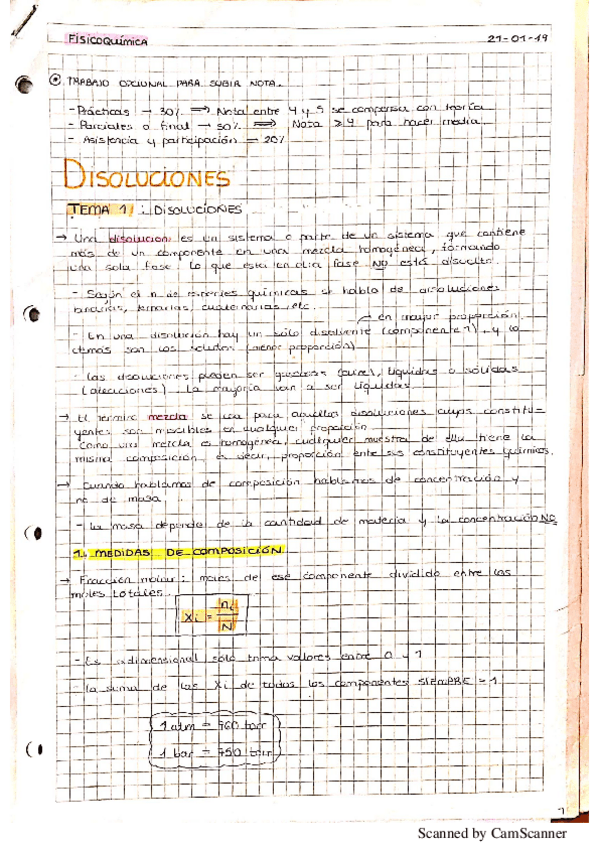 FISICOQUÍMICA 21-01-19
TRABAJO OPCIONAL PARA SUBIR NOTA.
- Prácticas → 30% ⇒ Nota entre 4 y 5 se compensa con teoría
- Parciales o final → 50% ⇒ Nota ≥ 4 para hacer media.
- Asistencia y participación = 20%
DISOLUCIONES
TEMA 1: DISOLUCIONES
→ Una disolucion es un sistema o parte de un sistema que contiene
más de un componente en una mezcla homogénea, formando
una sola fase. Lo que esta en otra fase NO está disuelto.
- Según el nº de especies químicas se habla de disoluciones
binarias, ternarias, cuaternarias, etc.
→ en mayor proporción.
- En una disolución hay un solo disolvente (componente 1), y lo
demás son los solutos (menor proporción)
- Las disoluciones pueden ser gaseosas (aire), líquidas o sólidas
(aleaciones). La mayoría van a ser líquidas.
→ El término mezcla se usa para aquellas disoluciones cuyos constitu-
yentes son miscibles en cualquier proporción.
Como una mezcla es homogénea, cualquier muestra de ella tiene la
misma composición, es decir, proporción entre sus constituyentes químicos.
→ Cuando hablamos de composición hablamos de concentración y
no de masa.
- La masa depende de la cantidad de materia y la concentración NO.
1. MEDIDAS DE COMPOSICIÓN
→ Fracción molar: moles de ese componente dividido entre los
moles totales.
Xi = ni / N
- Es adimensional solo toma valores entre 0 y 1
- La suma de las Xi de todos los componentes SIEMPRE = 1
1 atm = 760 torr
1 bar = 750 torr
1
Scanned by CamScanner